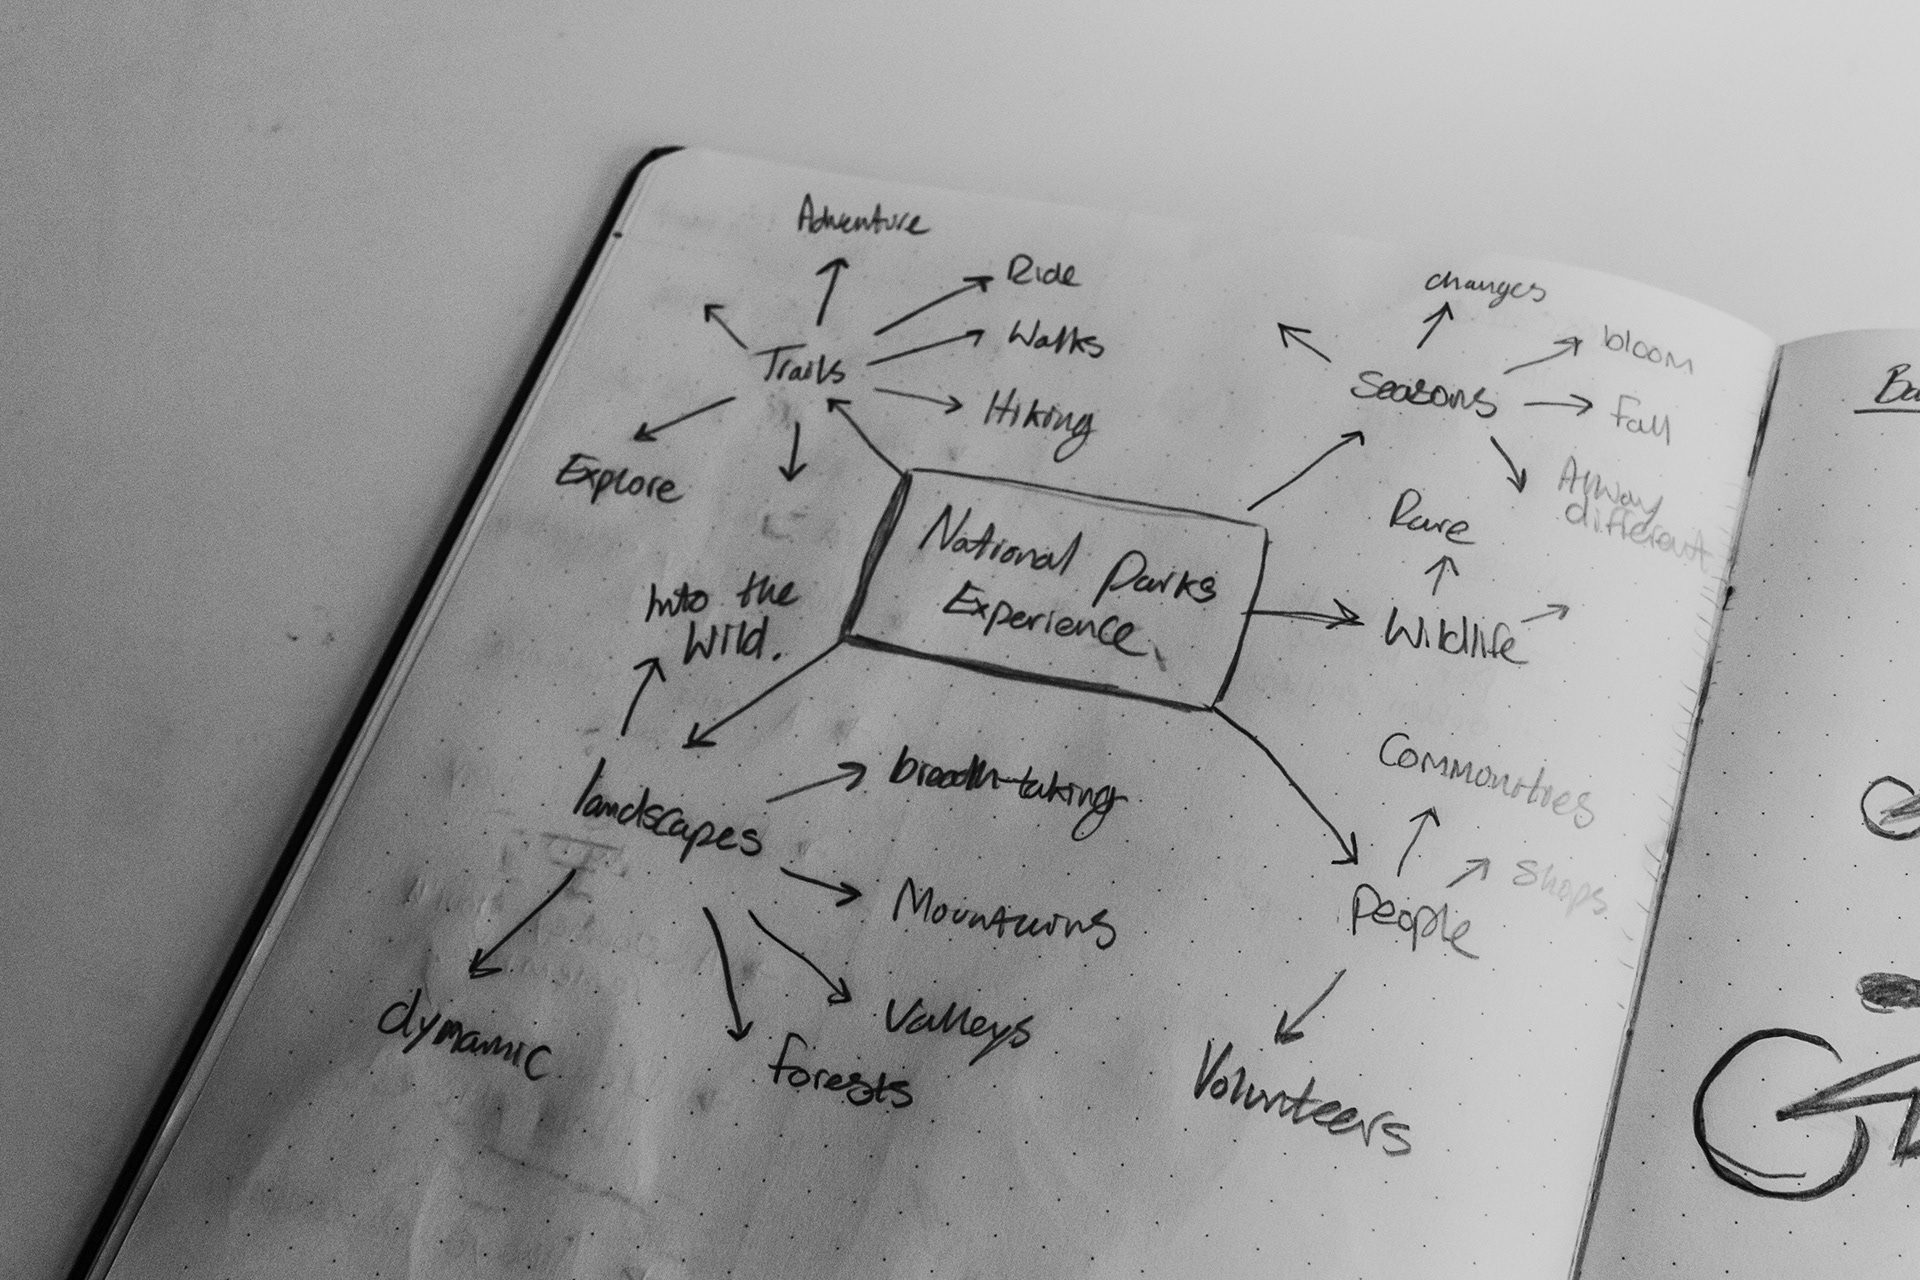 Adventure
Ride
Walks
Trails
Hiking
Explore
changes
bloom
Seasons
Fall
Alway
different
National Parks
Experience.
Rare
Wildlife
Into the
Wild.
landscapes
breath-taking
Mountains
Valleys
forests
dynamic
Communities
Shops
People
Volunteers